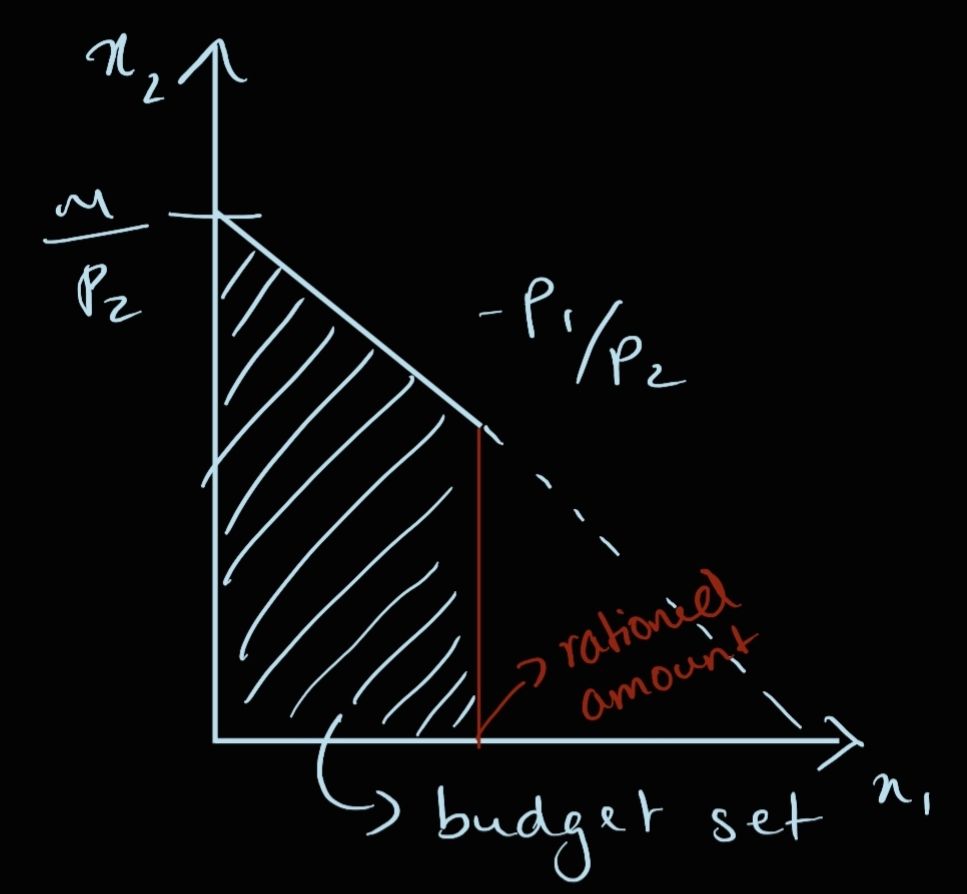 x₂
m
P₂
- P₁/P₂
rationed
amount
x₁
budget set